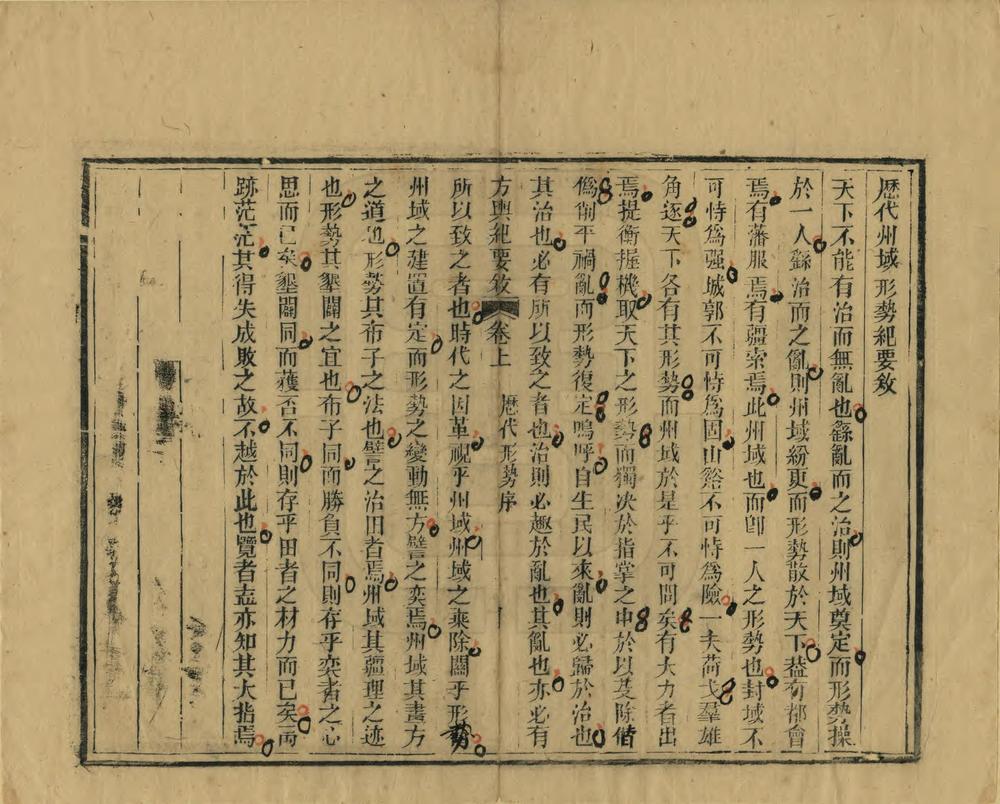 歷代州域形勢紀要敘
天下不能有治而無亂也繇亂而之治則州域奠定而形勢操
於一人繇治而之亂則州域紛更而形勢散於天下葢有都會
焉有藩服焉有疆索焉此州域也而卽一人之形勢也封域不
可恃爲强城郭不可恃爲固山谿不可恃爲險一夫荷戈羣雄
角逐天下各有其形勢而州域於是乎不可問矣有大力者出
焉提衡握機取天下之形勢而獨決於指掌之中於以芟除僭
僞削平禍亂而形勢復定嗚呼自生民以來亂則必歸於治也
其治也必有所以致之者也治則必趣於亂也其亂也亦必有
方輿紀要敘 卷上 歷代形勢序
所以致之者也時代之因革視乎州域州域之乘除關乎形勢
州域之建置有定而形勢之變動無方譬之奕焉州域其畫方
之道也形勢其布子之法也譬之治田者焉州域其疆理之迹
也形勢其墾闢之宜也布子同而勝負不同則存乎奕者之心
思而已矣墾闢同而穫否不同則存乎田者之材力而已矣兩
跡茫茫其得失成敗之故不越於此也覽者葢亦知其大指焉